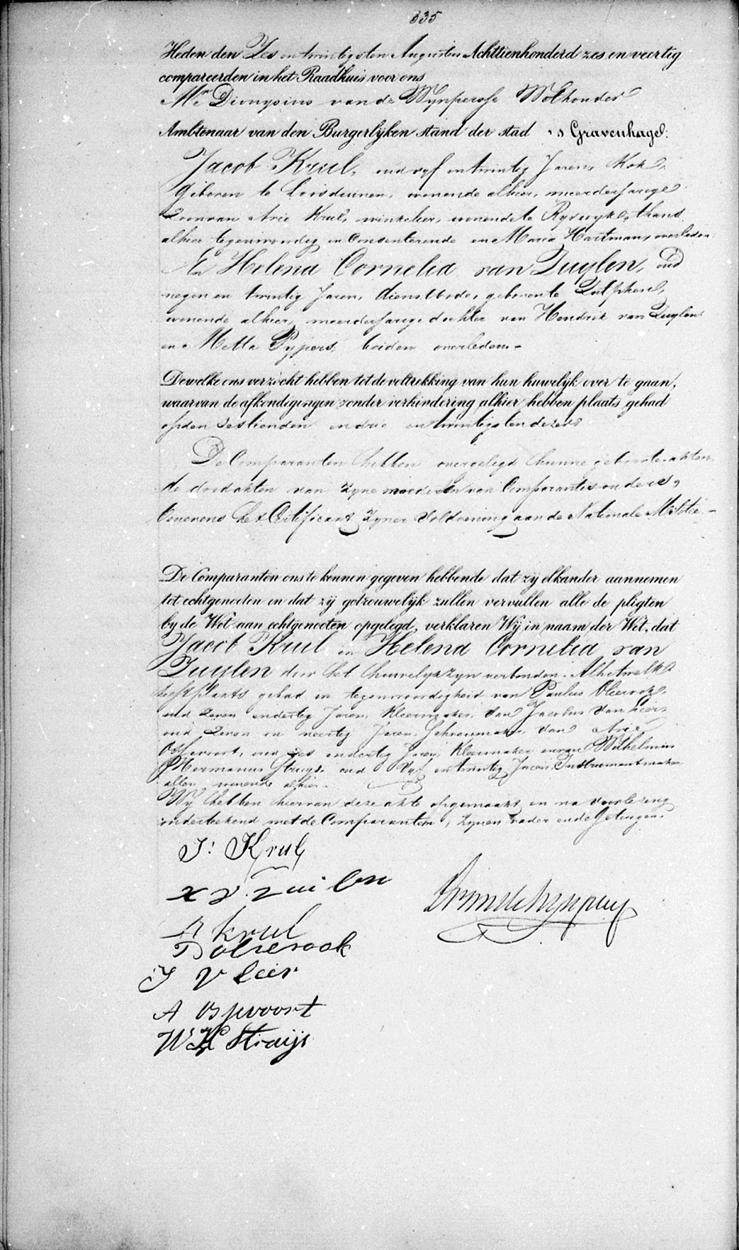 335
Heden den Zes en twintigsten Augustus Achttienhonderd zes en veertig
compareerden in het Raadhuis voor ons
Mr. Dionysius van de Wynpersse Wethouder
Ambtenaar van den Burgerlyken stand der stad 's Gravenhage:
Jacob Krul, oud vyf en twintig Jaren, Kok,
geboren te Loosduinen, wonende alhier, meerderjarige
Zoon van Arie Krul, winkelier, wonende te Ryswyk, thans
alhier tegenwoordig en Consenterende en Maria Hartman, overleden
En Helena Cornelia van Zuylen, oud
negen en twintig Jaren, dienstbode, geboren te Zutphen,
wonende alhier, meerderjarige dochter van Hendrik van Zuylen
en Metta Pypers, beiden overleden.-
Dewelke ons verzocht hebben tot de voltrekking van hun huwelyk over te gaan,
waarvan de afkondigingen zonder verhindering alhier hebben plaats gehad
op den Zestienden en drie en twintigsten dezer
De Comparanten hebben overgelegd hunne geboorte-akten
de doodakten van zyne moeder en van Comparantes ouders,
benevens het Certificaat zyner Voldoening aan de Nationale Militie.-
De Comparanten ons te kennen gegeven hebbende dat zy elkander aannemen
tot echtgenooten en dat zij getrouwelijk zullen vervullen alle de pligten
by de Wet aan echtgenooten opgelegd, verklaren Wij in naam der Wet, dat
Jacob Krul en Helena Cornelia van
Zuylen door het huwelyk zyn verbonden. Alhetwelk
heeft plaats gehad in tegenwoordigheid van Paulus
oud Zeven en dertig Jaren, Kleermaker, van Jacobus van
oud Zeven en veertig Jaren, Schoenmaker, van Arie
oud zes en dertig Jaren, Kleermaker en van Wilhelmus
Hermanus Struijs oud vyf en twintig Jaren Instrumentmaker
allen wonende alhier.-
Wy hebben hiervan deze akte opgemaakt, en na voorlezing
onderteekend met de Comparanten, zynen Vader en de Getuigen
J: Krul
v. Zuilen
A krul
J Vleer
A Ospvoort
W H Struijs